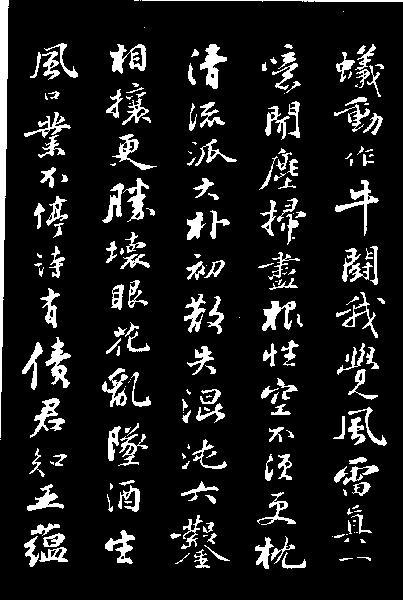 蟻動作牛鬪我覺風雷真一
噫聞塵掃盡根性空不須更枕
清流派大朴初散失混沌六鑿
相攘更勝壞眼花亂墜酒生
風口業不停詩有債君知五蘊